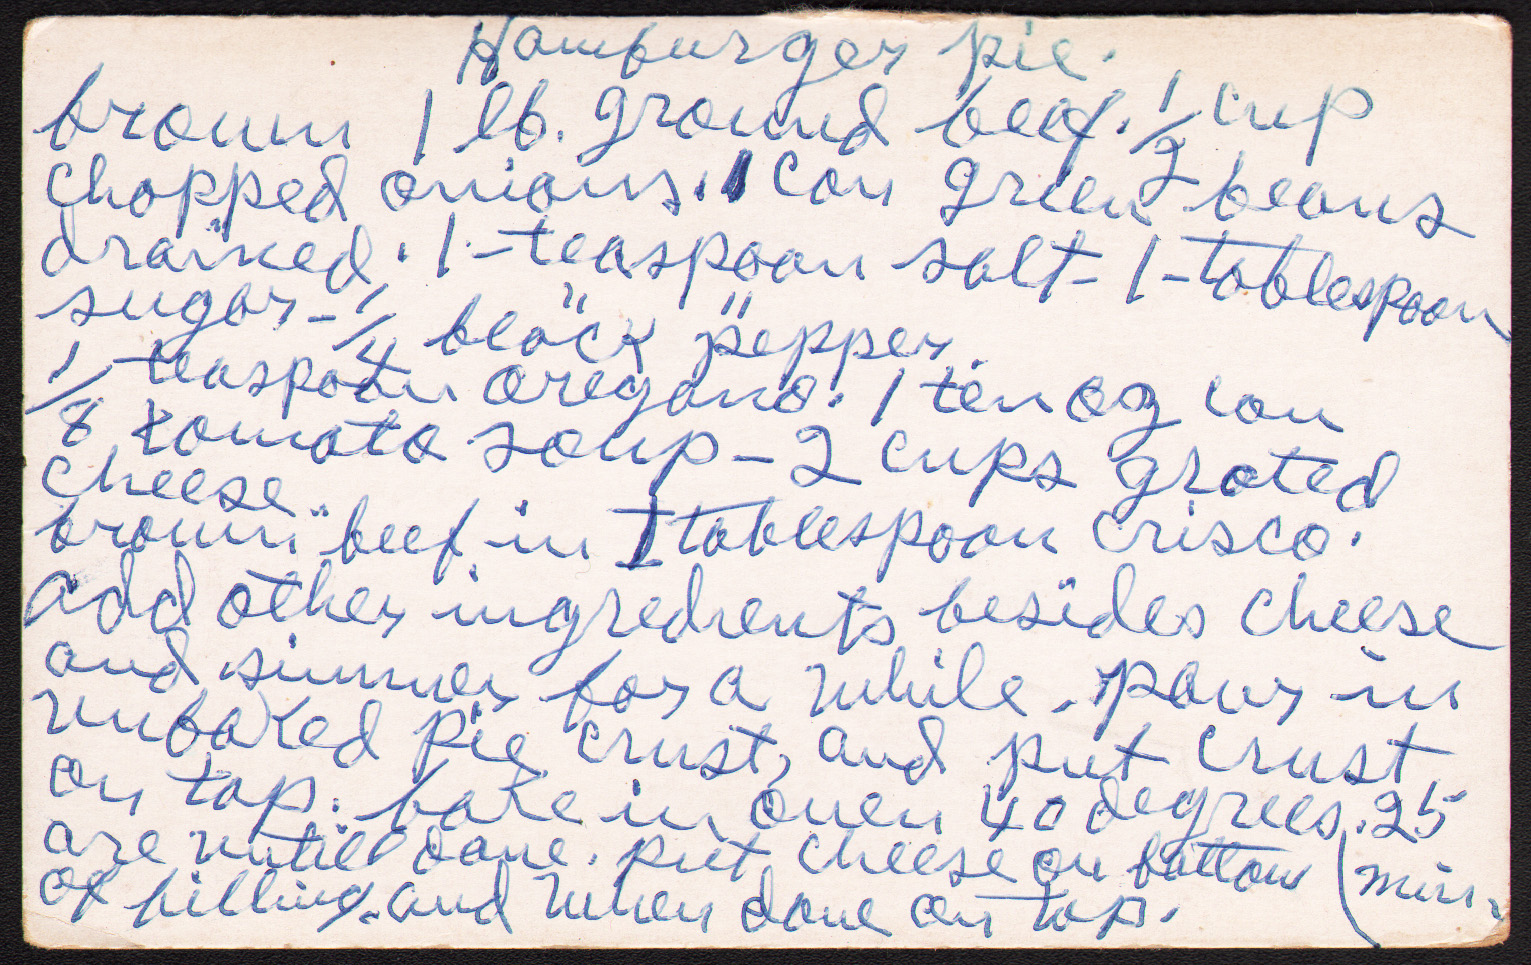 Hamburger pie.
brown 1 lb. ground beef. 1/2 cup
chopped onions. 1 can green beans
drained. 1-teaspoon salt- 1-tablespoon
sugar- 1/4 " black " pepper.
1/8 teaspoon oregano. 1 ten oz can
tomato soup - 2 cups grated
cheese.
brown beef in 1 tablespoon crisco.
Add other ingredients besides cheese
and simmer for a while. pour in
unbaked pie crust, and put crust
on top. bake in oven 40 degrees. 25
are untill done. put cheese on bottom (min.
of filling. and when done on top.